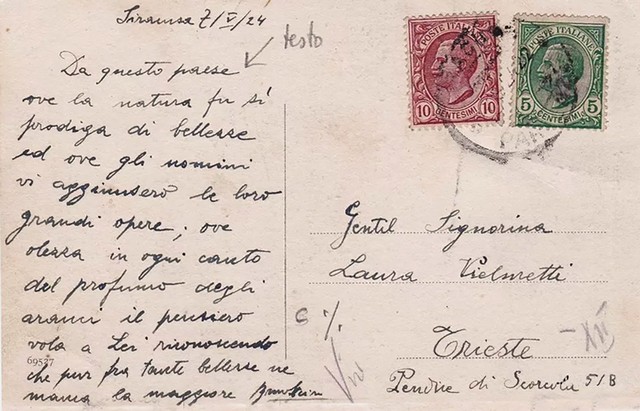 Siracusa 7/V/24
testo
Da questo paese
ove la natura fu sì
prodiga di bellesse
ed ove gli uomini
vi aggiunsero le loro
grandi opere; ove
olessa in ogni canto
del profumo degli
aranci il pensiero
vola a Lei riconoscendo
che pur fra tante bellesse ne
manca la maggiore
69527
POSTE ITALIANE
10 CENTESIMI 10
POSTE ITALIANE
5 CENTESIMI 5
Gentil Signorina
Laura Vielmetti
Trieste
Pendice di Scorcola 51B
XII